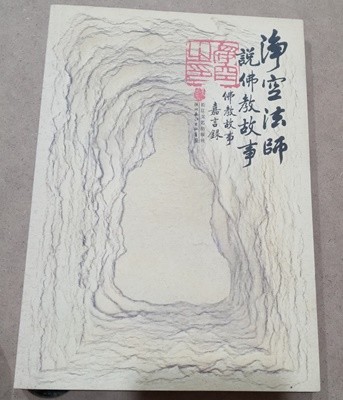 淨空法師
說佛教故事
佛教故事
嘉言錄